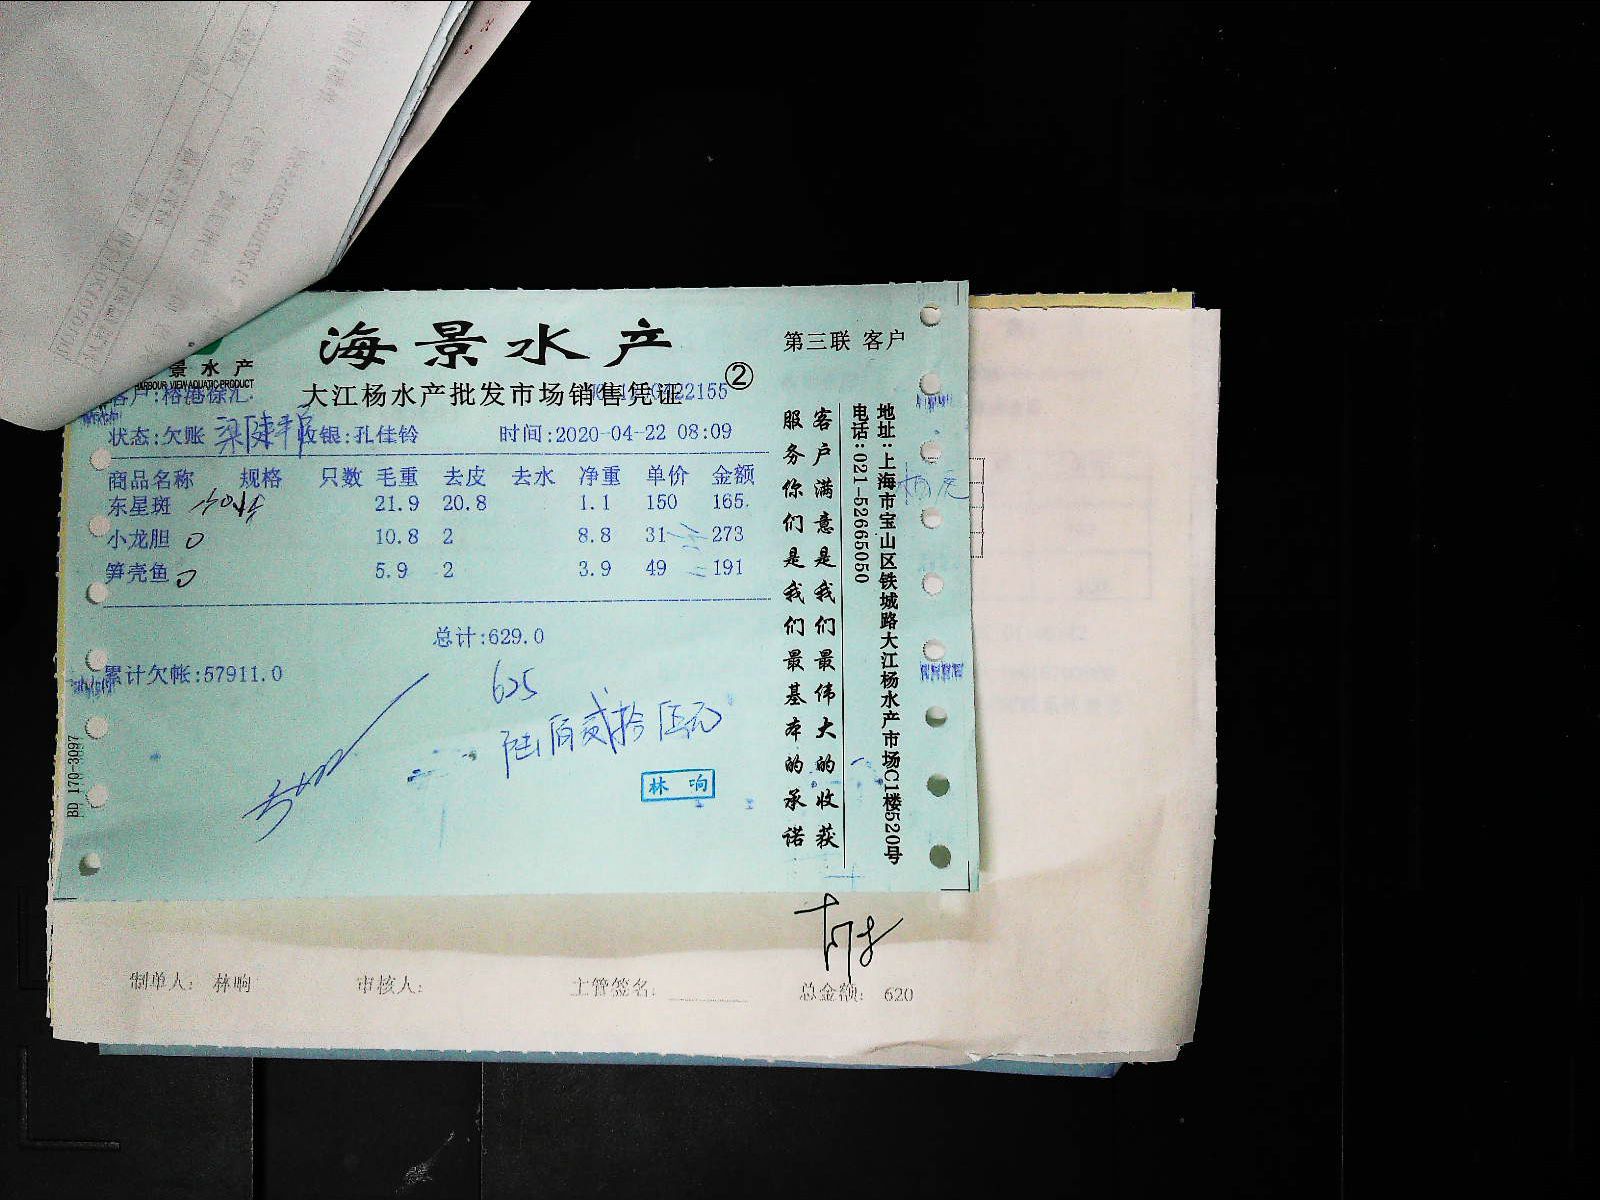 海景水产
第三联 客户
景水产
HARBOUR VIEW AQUATIC PRODUCT
大江杨水产批发市场销售凭证
②
客户:榕港徐汇
状态:欠账 收银:孔佳铃 时间:2020-04-22 08:09
商品名称 规格 只数 毛重 去皮 去水 净重 单价 金额
东星斑 21.9 20.8 1.1 150 165.
小龙胆 10.8 2 8.8 31 273
笋壳鱼 5.9 2 3.9 49 191
总计:629.0
累计欠帐:57911.0
625
陆佰贰拾伍元
林响
BD 170-3097
客户满意是我们最伟大的收获
服务你们是我们最基本的承诺
地址:上海市宝山区铁城路大江杨水产市场C1楼520号
电话:021-52665050
制单人: 林响 审核人: 主管签名: 总金额: 620